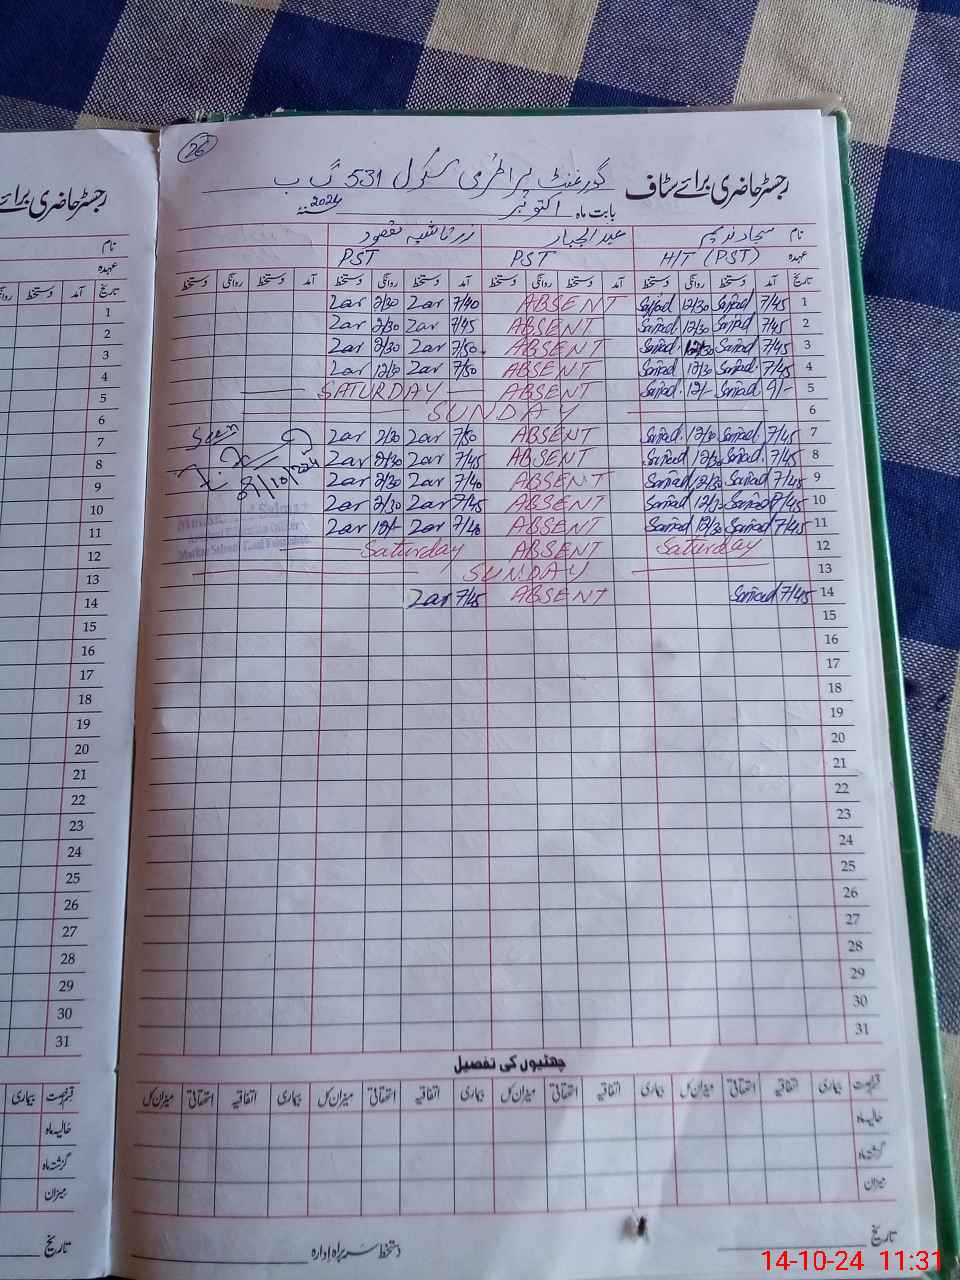 26
رجسٹر حاضری برائے سٹاف گورنمنٹ پرائمری سکول 531 گ ب
بابت ماہ اکتوبر 2024
نام سجاد ندیم عبدالجبار
عہدہ H/T (PST) PST PST
تاریخ آمد دستخط روانگی دستخط آمد دستخط روانگی دستخط آمد دستخط روانگی دستخط آمد دستخط روانگی دستخط
1 7/45 Sajjad 12/30 Sajjad ABSENT 7/40 Zar 2/30 Zar
2 7/45 Sajjad 12/30 Sajjad ABSENT 7/45 Zar 2/30 Zar
3 7/45 Sajjad 12/30 Sajjad ABSENT 7/50 Zar 2/30 Zar
4 7/45 Sajjad 12/30 Sajjad ABSENT 7/50 Zar 12/30 Zar
5 9/- Sajjad 12/- Sajjad ABSENT SATURDAY
6 SUNDAY
7 7/45 Sajjad 12/30 Sajjad ABSENT 7/50 Zar 2/30 Zar
8 7/45 Sajjad 12/30 Sajjad ABSENT 7/45 Zar 2/30 Zar
9 7/45 Sajjad 12/30 Sajjad ABSENT 7/40 Zar 2/30 Zar
10 7/45 Sajjad Sajjad ABSENT 7/45 Zar 2/30 Zar
11 7/45 Sajjad 12/30 Sajjad ABSENT 7/40 Zar 12/- Zar
12 Saturday ABSENT Saturday
13 SUNDAY
14 7/45 Sajjad ABSENT 7/45 Zar
15
16
17
18
19
20
21
22
23
24
25
26
27
28
29
30
31
Seen
چھٹیوں کی تفصیل
بیماری اتفاقیہ استحقاقی میزان کل بیماری اتفاقیہ استحقاقی میزان کل بیماری اتفاقیہ استحقاقی میزان کل بیماری اتفاقیہ استحقاقی میزان کل
حالیہ ماہ
گزشتہ ماہ
میزان
تاریخ دستخط سربراہ ادارہ
رجسٹر حاضری برائے
نام
عہدہ
تاریخ آمد دستخط
1
2
3
4
5
6
7
8
9
10
11
12
13
14
15
16
17
18
19
20
21
22
23
24
25
26
27
28
29
30
31
بیماری
حالیہ ماہ
گزشتہ ماہ
میزان
تاریخ
14-10-24 11:31